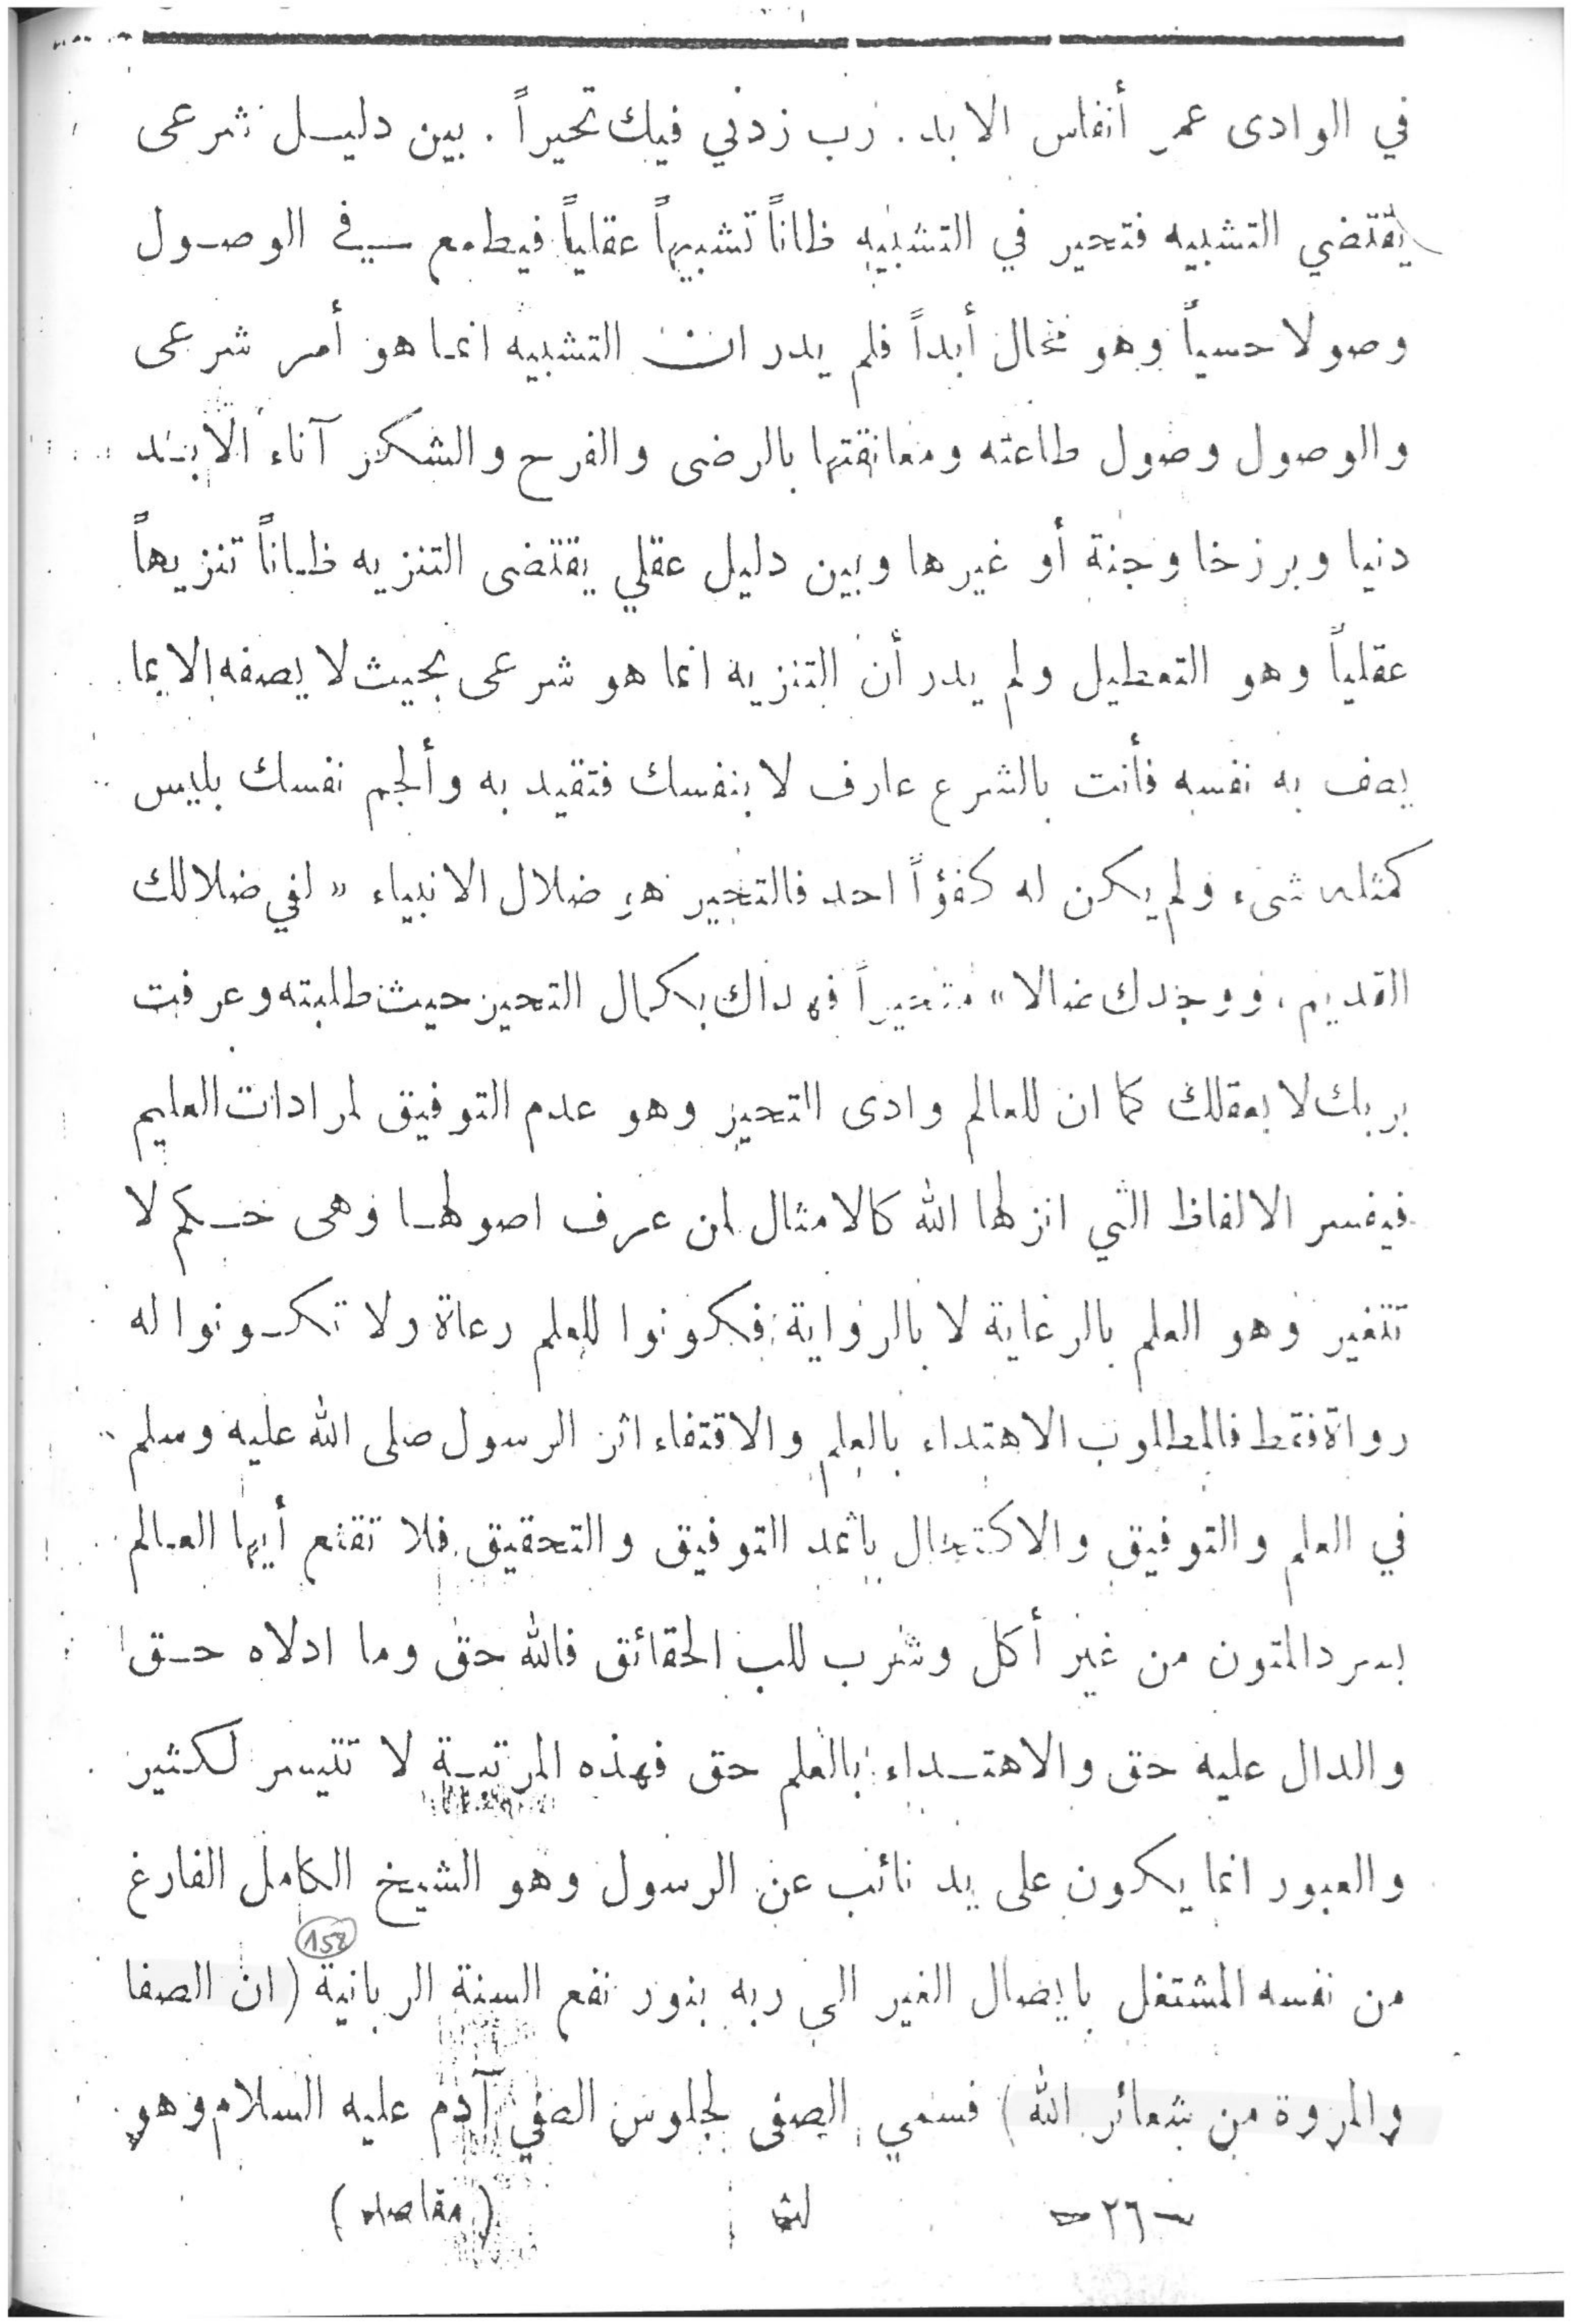 في الوادى عمر أنفاس الابد. رب زدني فيك تحيراً. بين دليل شرعى
يقتضي التشبيه فتحير في التشبيه ظاناً تشبيهاً عقلياً فيطمع في الوصول
وصولا حسياً وهو محال أبداً فلم يدر ان التشبيه انما هو أمر شرعى
والوصول وصول طاعته ومعانقتها بالرضى والفرح والشكر آناء الابد
دنيا وبرزخا وجنة أو غيرها وبين دليل عقلي يقتضى التنزيه ظاناً تنزيهاً
عقلياً وهو التعطيل ولم يدر أن التنزيه انما هو شرعى بحيث لا يصفه الا بما
يصف به نفسه فأنت بالشرع عارف لا بنفسك فتقيد به وألجم نفسك بليس
كمثله شىء ولم يكن له كفؤاً احد فالتحير هو ضلال الانبياء « لفي ضلالك
القديم، ووجدك ضالا » متحيراً فهداك بكمال التحير حيث طلبته وعرفت
بربك لا بعقلك كما ان للعالم وادى التحير وهو عدم التوفيق لمرادات العليم
فيفسر الالفاظ التي انزلها الله كالامثال لمن عرف اصولها وهى حكم لا
تتغير وهو العلم بالرعاية لا بالرواية فكونوا للعلم رعاة ولا تكونوا له
رواة فقط فالمطلوب الاهتداء بالعلم والاقتفاء اثر الرسول صلى الله عليه وسلم
في العلم والتوفيق والاكتحال باثمد التوفيق والتحقيق فلا تقنع أيها العالم
بسرد المتون من غير أكل وشرب للب الحقائق فالله حق وما ادلاه حق
والدال عليه حق والاهتداء بالعلم حق فهذه المرتبة لا تتيسر لكثير
والعبور انما يكون على يد نائب عن الرسول وهو الشيخ الكامل الفارغ
من نفسه المشتغل بايصال الغير الى ربه بنور نفع السنة الربانية (ان الصفا
158
والمروة من شعائر الله) فسمي الصفى لجلوس الصفي آدم عليه السلام وهو
— ٢٦ — لث (مقاصد)